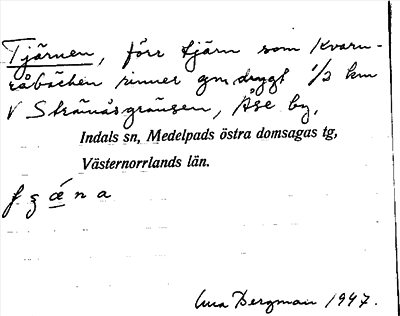 Tjärnen, förr tjärn som Kvarn-
råbäcken rinner gm drygt 1/2 km
V Stränäsgränsen, Åse by,
Indals sn, Medelpads östra domsagas tg,
Västernorrlands län.
Bergman 1947.